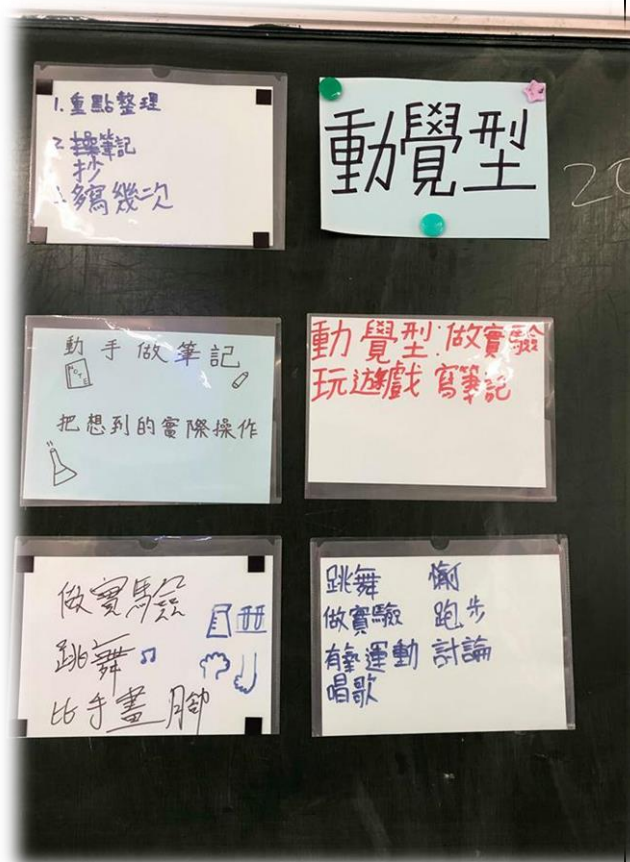 1.重點整理
2.筆記
抄
3.多寫幾次
動覺型
20
動手做筆記
NOTE
把想到的實際操作
動覺型:做實驗
玩遊戲 寫筆記
做實驗
跳舞
比手畫腳
跳舞
做實驗 跑步
有氧運動 討論
唱歌